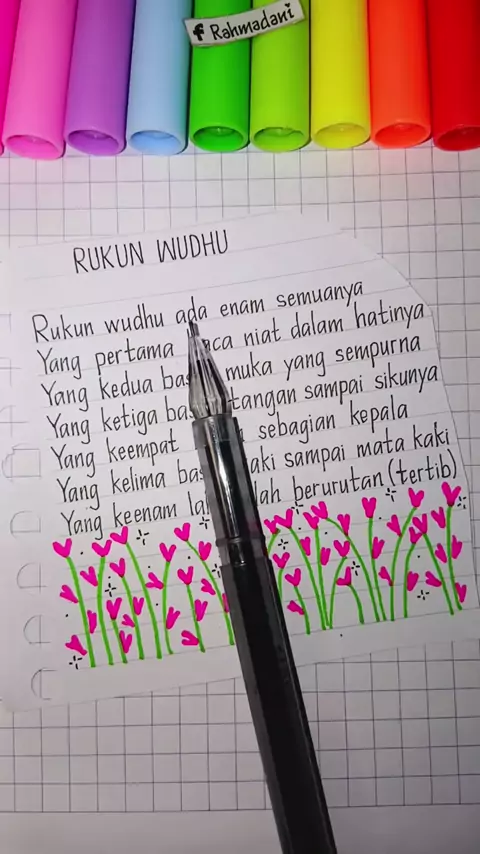 f Rahmadani
RUKUN WUDHU
Rukun wudhu ada enam semuanya
Yang pertama niat dalam hatinya
Yang kedua muka yang sempurna
Yang ketiga tangan sampai sikunya
Yang keempat sebagian kepala
Yang kelima sampai mata kaki
Yang keenam berurutan (tertib)